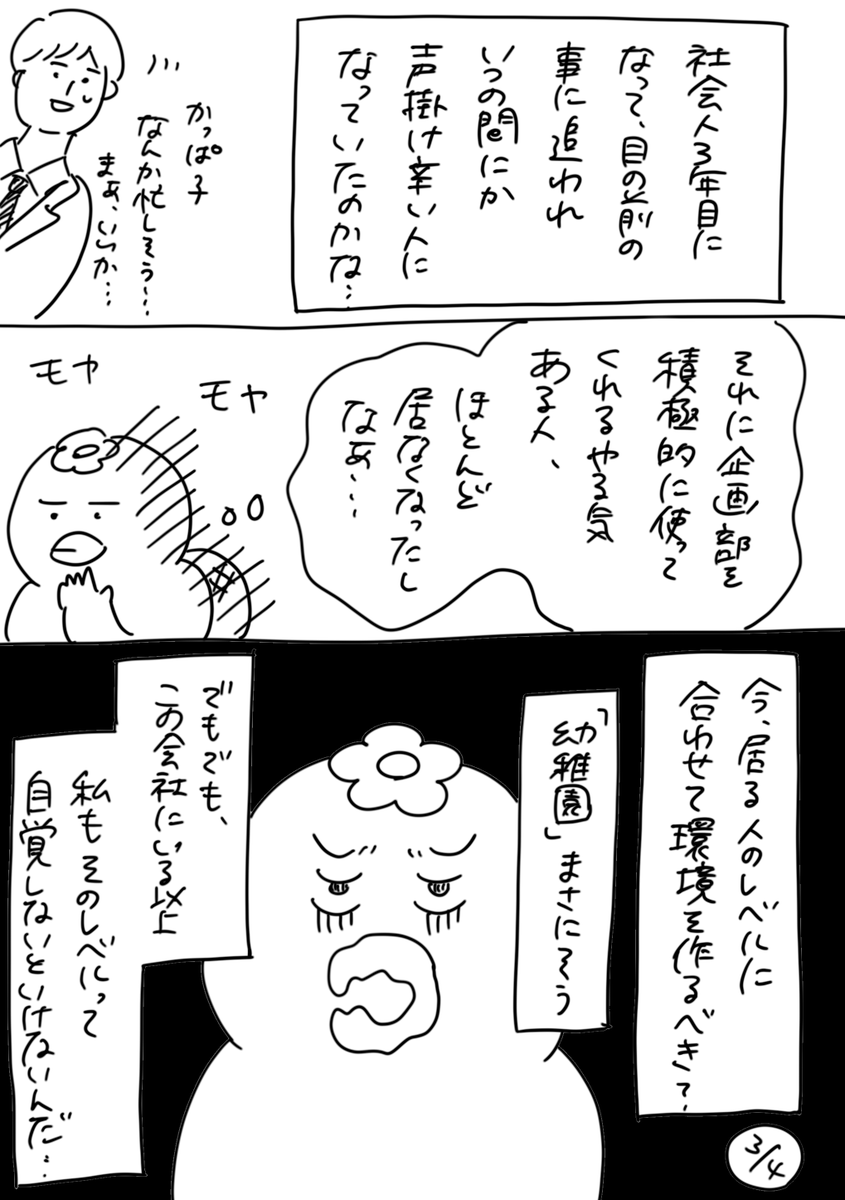 社会人3年目に
なって、目の前の
事に追われ
いつの間にか
声掛け辛い人に
なっていたのかな…
かっぱ子
なんか忙しそう…
まぁ、いっか…
それに企画部を
積極的に使って
くれるやる気
ある人、
ほとんど
居なくなったし
なぁ…
モヤ
モヤ
今、居る人のレベルに
合わせて環境を作るべき?
「幼稚園」まさにそう
でもでも、
この会社にいる以上
私もそのレベルって
自覚しないといけないんだ…
3/4